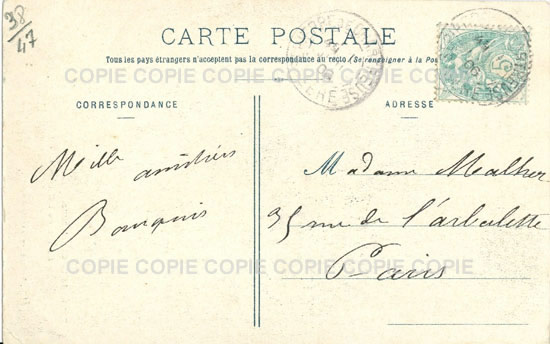 38/47
CARTE POSTALE
Tous les pays étrangers n'acceptent pas la correspondance au recto (Se renseigner à la Pos
COPIE COPIE COPIE COPIE COPIE COPIE
CORRESPONDANCE
ADRESSE
Mille amitiés
Madame
35 rue de l'arbalette
Paris
COPIE COPIE COPIE COPIE COPIE COPIE